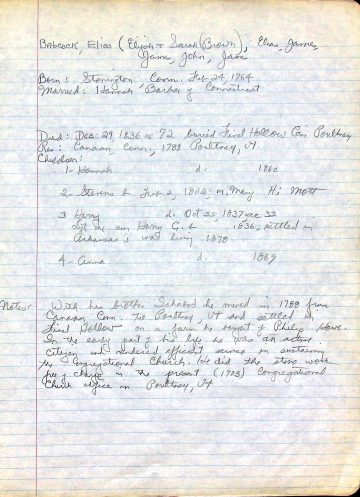 Babcock, Elias (Elijah + Sarah (Brown), Elias, James,
James, John, James
Born: Stonington Conn. Feb 24, 1764
Married: Hannah Barber of Connecticut
Died: Dec. 29, 1836 ae 72 buried Hollow Cem Poultney
Res: Canaan, Conn., 1788 Poultney, Vt
Children:
1- Hannah d. 1860
2- b Feb 2, 1802; m, Mary Mott
3 Harry d. Oct 25, 1837 ae 33
son Harry G. b 1836; settled in
Arkansas; was living 1878
4- Anna d. 1869
Notes: With his brother Ichabod he moved in 1788 from
Canaan Conn. To Poultney, Vt and settled in
Hollow on a farm he bought of Philip
In the early part of his life he was an active
citizen and rendered efficient service in sustaining
the Congregational Church. He did the stone work
free of charge on the present Congregational
Church edifice in Poultney, Vt